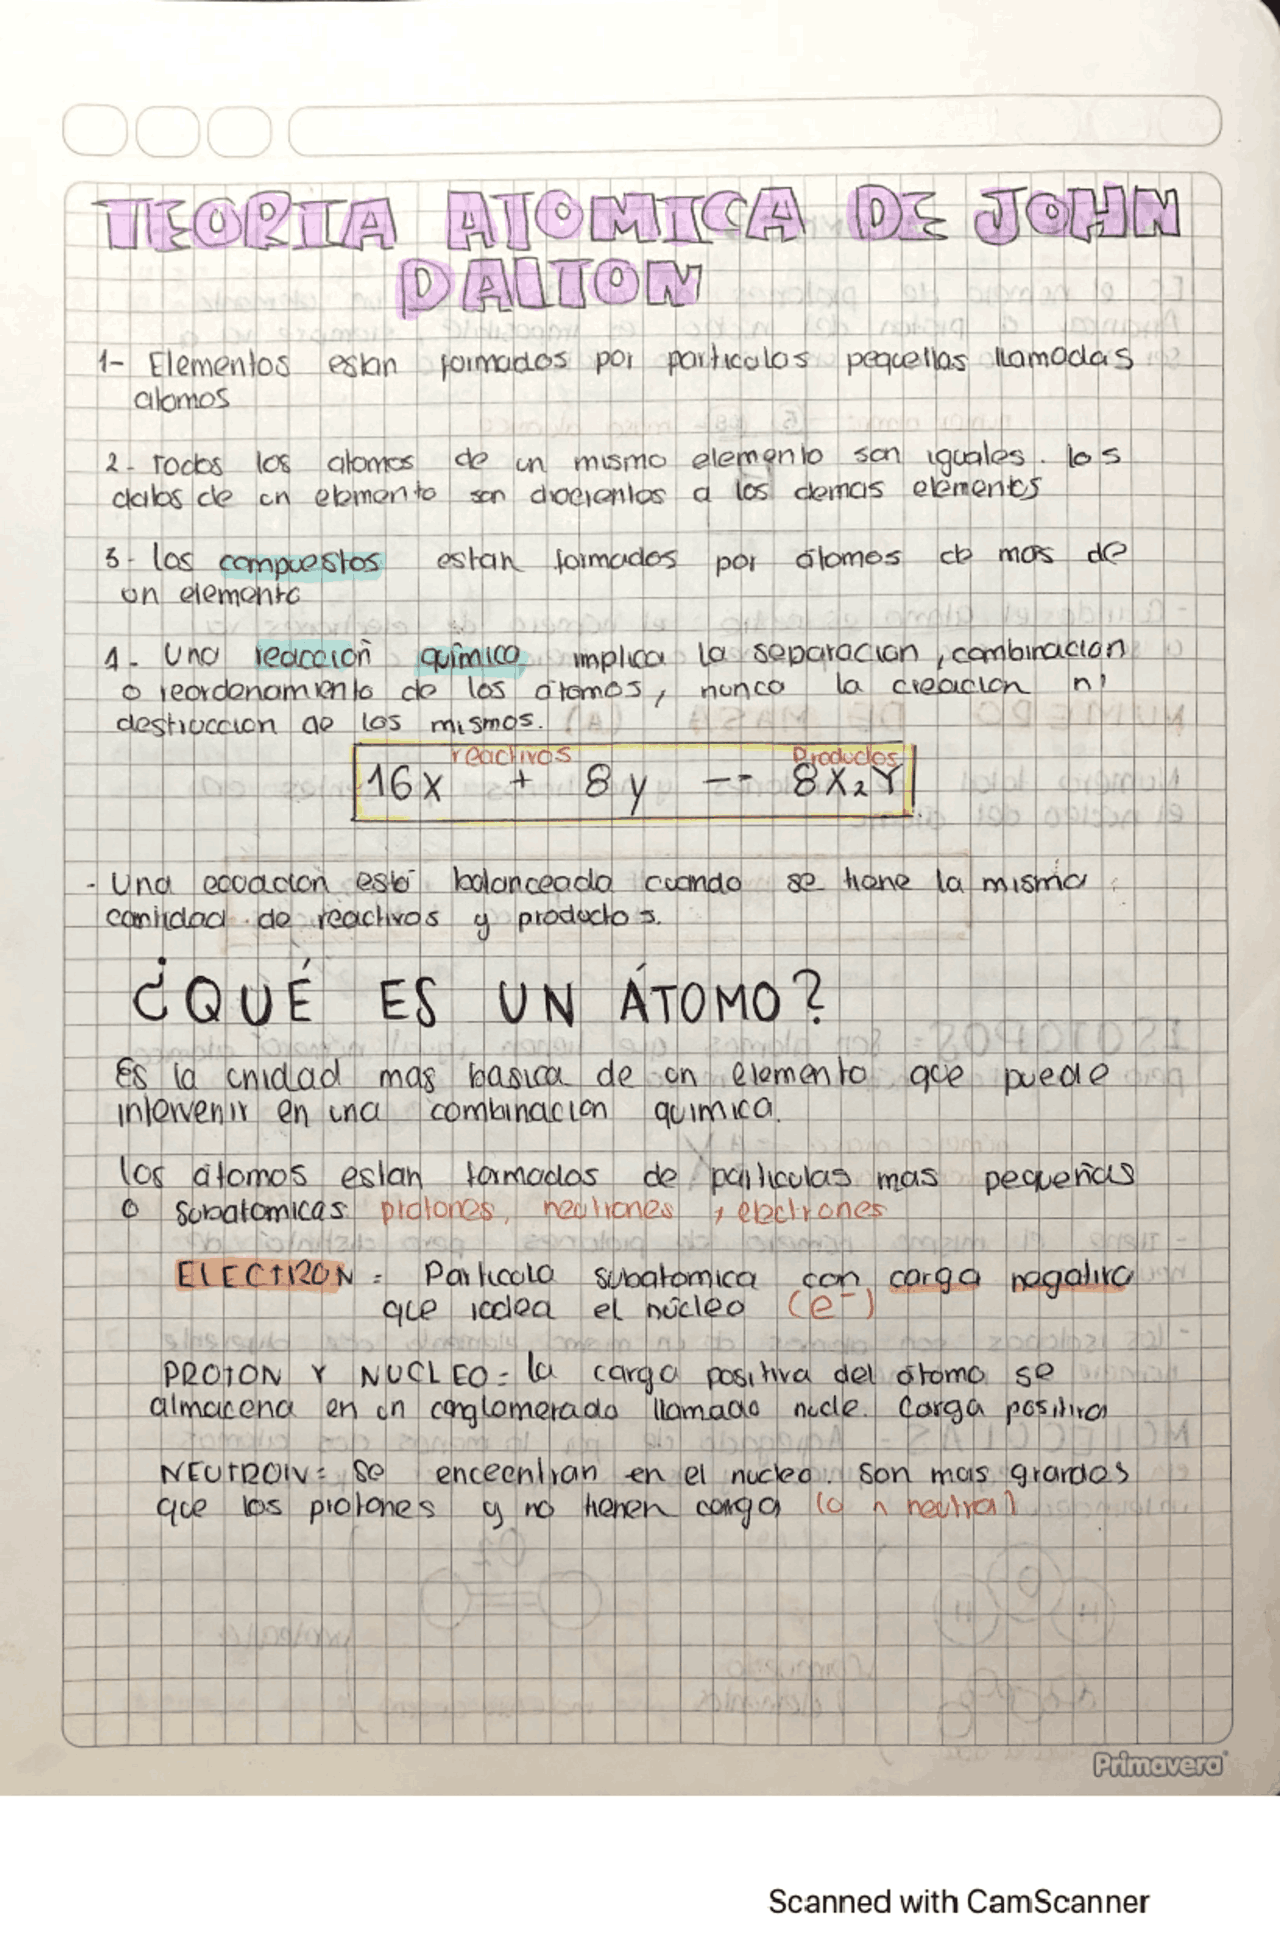 TEORIA ATOMICA DE JOHN
DALTON
1- Elementos estan formados por particulas pequeñas llamadas
atomos
2- Todos los atomos de un mismo elemento son iguales. los
de un elemento son diferentes a los demas elementos
3- los compuestos estan formados por átomos de mas de
un elemento
4- Una reacción química implica la separacion, combinacion
o reordenamiento de los átomos, nunca la creacion ni
destruccion de los mismos.
reactivos Productos
16x + 8y -- 8X₂Y
- Una ecuacion está balanceada cuando se tiene la misma
cantidad de reactivos y productos.
¿QUÉ ES UN ÁTOMO?
Es la unidad mas basica de un elemento que puede
intervenir en una combinacion quimica.
los átomos estan formados de particulas mas pequeñas
o subatomicas protones, neutrones, electrones
ELECTRON = Particula subatomica con carga negativa
que rodea el núcleo (e⁻)
PROTON Y NUCLEO = la carga positiva del átomo se
almacena en un conglomerado llamado nucle. Carga positiva
NEUTRON = Se encuentran en el nucleo. son mas grandes
que los protones y no tienen carga (o n neutra)
Primavera
Scanned with CamScanner